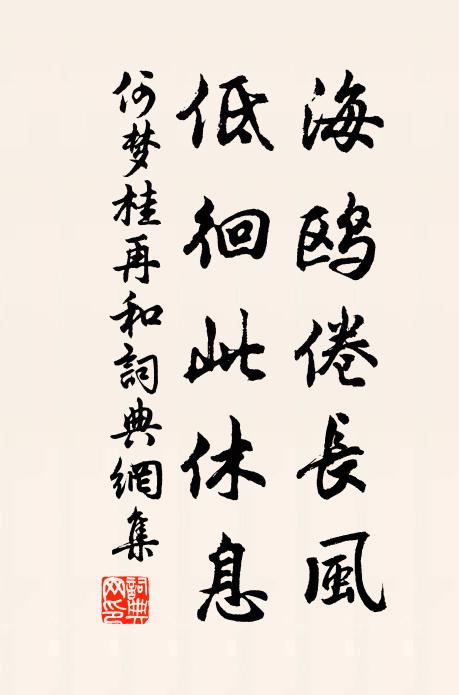 海鸥倦長風
低徊此休息
何梦桂再和詞典網集
詞典网印